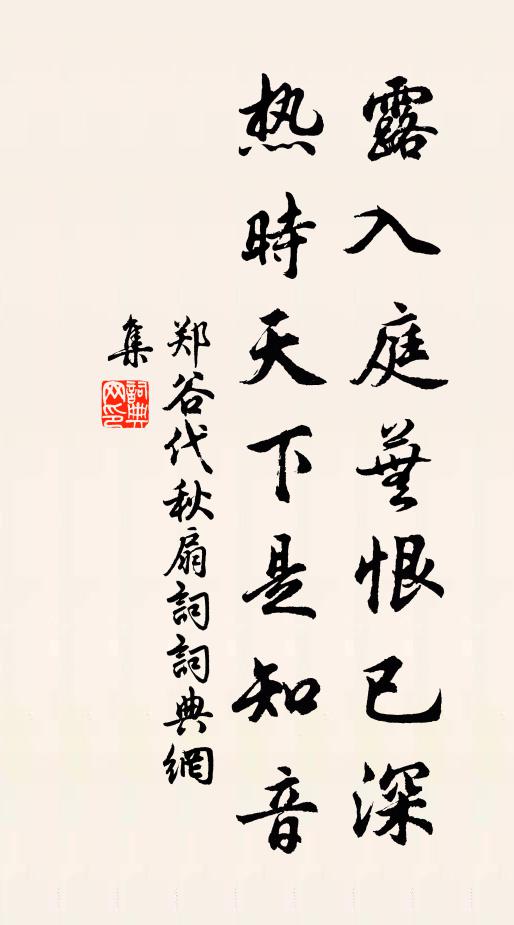 露入庭蕪恨已深
热時天下是知音
郑谷代秋扇詞詞典網
集
詞典網印